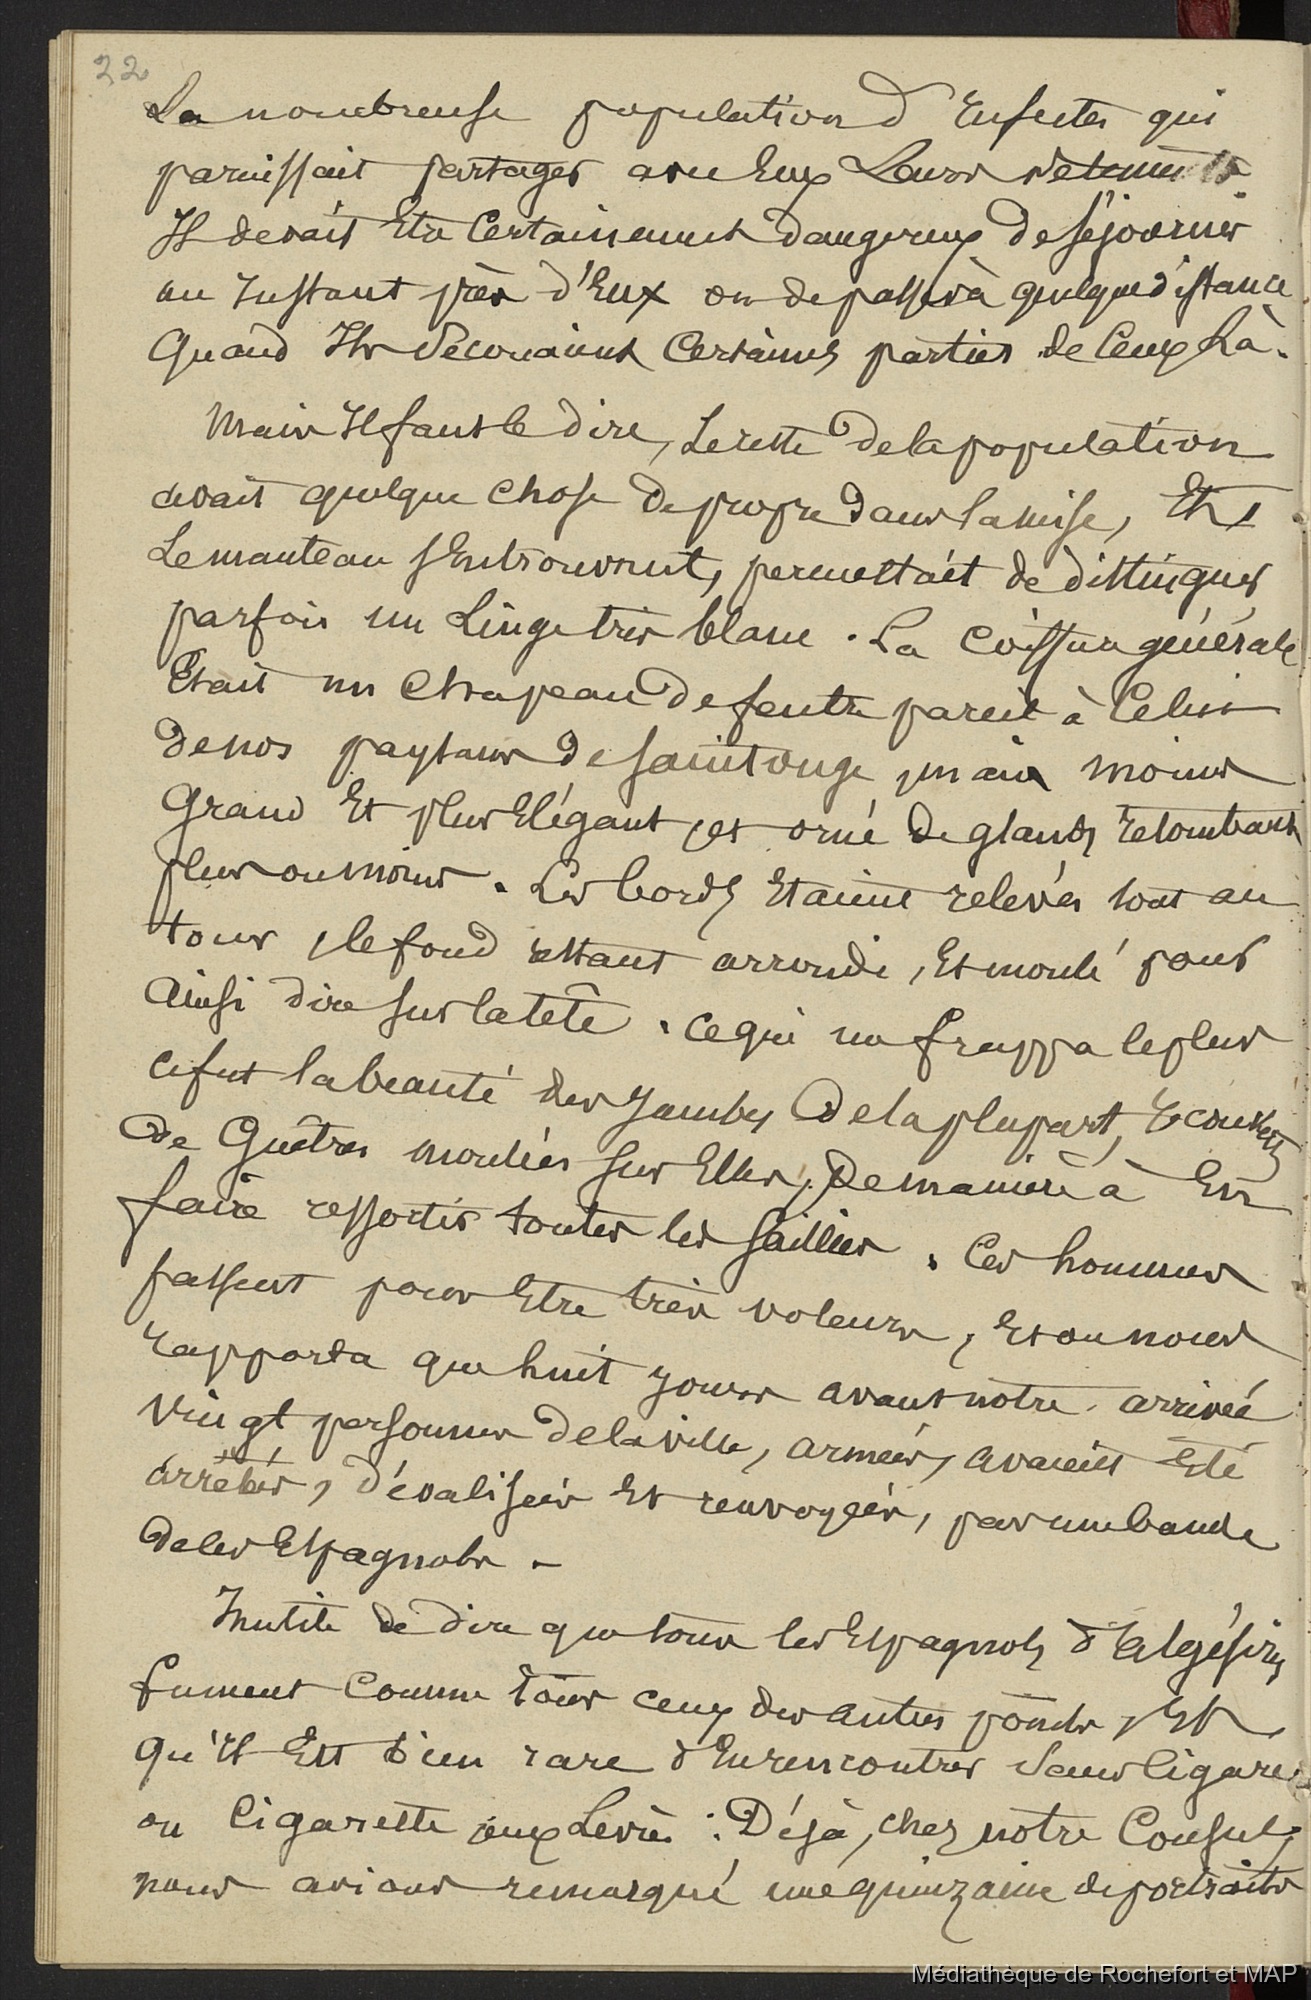 22
La nombreuse population d'Insectes qui
paraissait partager avec Eux Leurs vêtements.
Il devait Etre Certainement dangereux de séjourner
un Instant près d'Eux ou de passer à quelque distance
Quand Ils secouaient Certaines parties de Ceux là.
Mais Il faut le dire, Le reste de la population
avait quelque chose de propre dans la mise, Et
Le manteau s'Entrouvrant, permettait de distinguer
parfois un Linge très blanc. La Coiffure générale
Etait un Chapeau de feutre pareil à Celui
de nos paysans de Saintonge, mais moins
Grand Et plus Elégant, et orné de glands retombant
plus ou moins. Les bords Etaient relevés tout au
tour, le fond restant arrondi, Et moulé pour
Ainsi dire sur la tête. Ce qui me frappa le plus
ce fut la beauté des Jambes de la plupart, recouvertes
de Guêtres moulées sur Elles, de manière à En
faire ressortir toutes les saillies. Ces hommes
passent pour Etre très voleurs, Et on nous
rapporta que huit Jours avant notre arrivée
vingt personnes de la ville, armées, avaient Eté
arrêtées, dévalisées Et renvoyées, par une bande
de les Espagnols.
Inutile de dire que tous les Espagnols d'Algésiras
fument Comme tous ceux des autres points, Et
qu'Il Est bien rare d'En rencontrer sans Cigare
ou Cigarette aux Lèvres. Déjà, chez notre Consul,
nous avions remarqué une quinzaine de portraits
Médiathèque de Rochefort et MAP